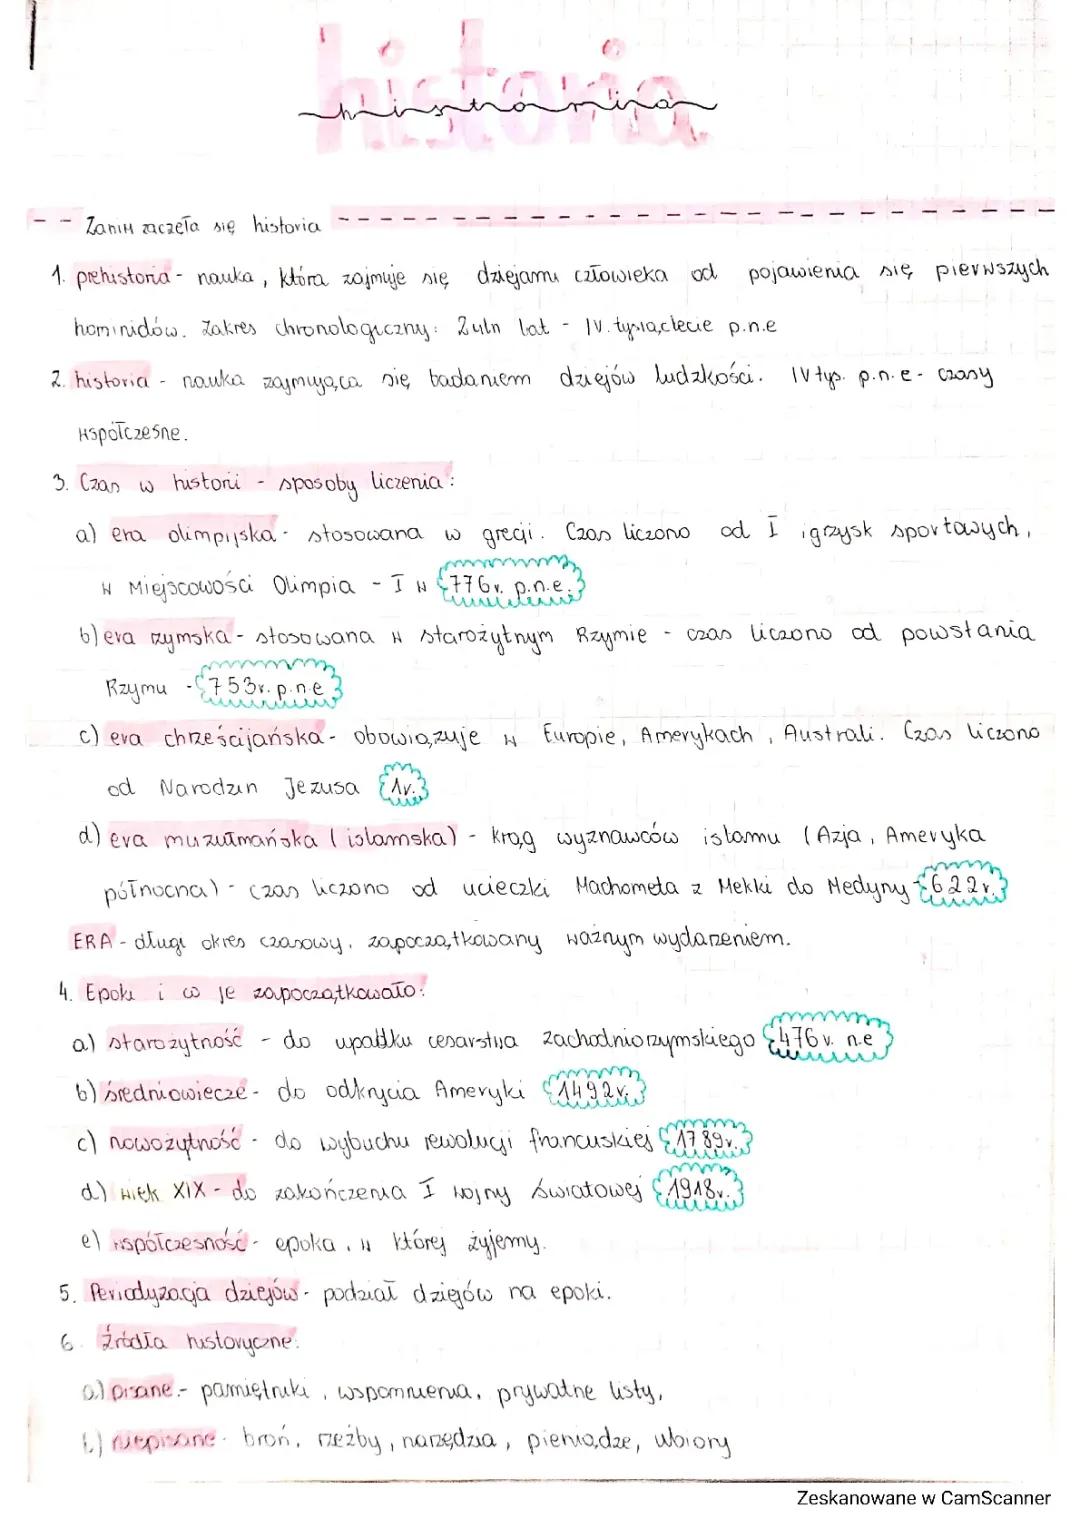 historia
historia
Zanim zaczęła się historia
1. prehistoria - nauka, która zajmuje się dziejami człowieka od pojawienia się pierwszych
hominidów. Zakres chronologiczny: 2 mln lat - IV. tysiąclecie p.n.e
2. historia - nauka zajmująca się badaniem dziejów ludzkości. IV tys. p.n.e - czasy
współczesne.
3. Czas w historii - sposoby liczenia:
a) era olimpijska - stosowana w grecji. Czas liczono od I igrzysk sportowych,
w Miejscowości Olimpia - I w 776r. p.n.e.
b) era rzymska - stosowana w starożytnym Rzymie - czas liczono od powstania
Rzymu - 753r. p.n.e
c) era chrześcijańska - obowiązuje w Europie, Amerykach, Australi. Czas liczono
od Narodzin Jezusa 1r.
d) era muzułmańska (islamska) - krąg wyznawców islamu (Azja, Ameryka
północna) - czas liczono od ucieczki Machometa z Mekki do Medyny 622r.
ERA - długi okres czasowy, zapoczątkowany ważnym wydarzeniem.
4. Epoki i co je zapoczątkowało:
a) starożytność - do upadku cesarstwa zachodniorzymskiego 476r. n.e
b) średniowiecze - do odkrycia Ameryki 1492r.
c) nowożytność - do wybuchu rewolucji francuskiej 1789r.
d) wiek XIX - do zakończenia I wojny światowej 1918r.
e) współczesność - epoka, w której żyjemy.
5. Periodyzacja dziejów - podział dziejów na epoki.
6. Źródła historyczne:
a) pisane - pamiętniki, wspomnienia, prywatne listy,
b) niepisane - broń, rzeźby, narzędzia, pieniądze, ubiory
Zeskanowane w CamScanner